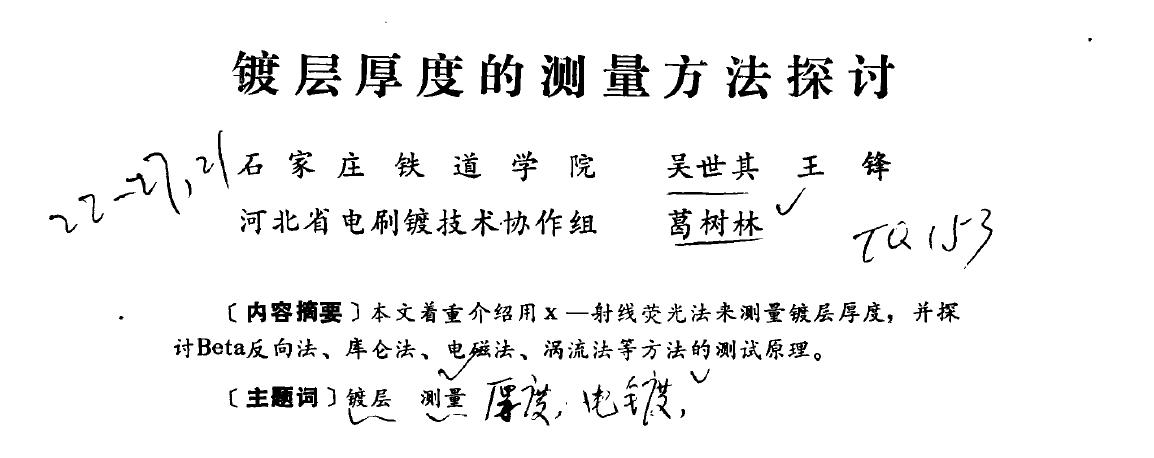 镀层厚度的测量方法探讨
22-27,21 石家庄铁道学院 吴世其 王锋
河北省电刷镀技术协作组 葛树林 TQ153
〔内容摘要〕本文着重介绍用x—射线荧光法来测量镀层厚度，并探
讨Beta反向法、库仑法、电磁法、涡流法等方法的测试原理。
〔主题词〕镀层 测量 厚度，电镀，